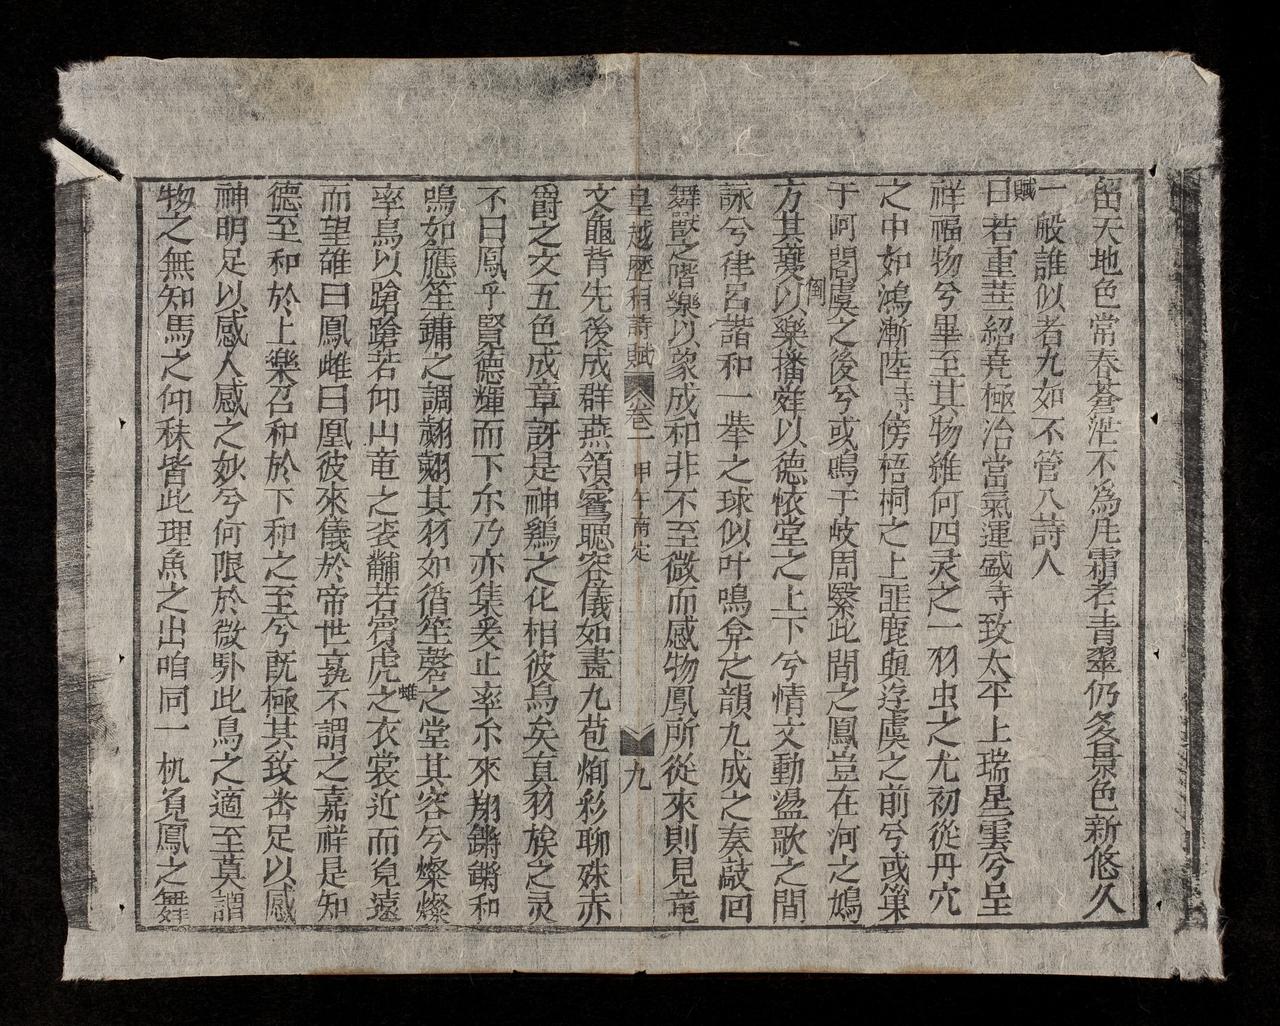 留天地色常春蒼茫不為凡霜老青翠仍多景色新悠久
一般誰似者九如不管八詩人
賦
曰若重華紹堯極治當氣運盛寺致太平上瑞星雲兮呈
祥福物兮畢至其物維何四灵之一羽虫之尤初從丹穴
之中如鴻漸陸詩傍梧桐之上匪鹿與逐虞之前兮或巢
于阿閣虞之後兮或鳴于岐周繄此間之鳳豈在河之鳩
倒
方其夔以樂播舜以德恢堂之上下兮情文動盪歌之間
詠兮律呂諧和一拳之球似叶鳴弇之韻九成之奏敲回
舞獸之階樂以象成和非不至微而感物鳳所從來則見竜
皇越歷科詩賦 卷一 甲午南定 九
文龜背先後成群燕領鸞聰容儀如畫九苞炯彩聊姝赤
爵之文五色成章訝是神鷄之化相彼鳥矣真羽族之灵
不曰鳳乎賢德輝而下尔乃亦集爰止率尔來翔鏘鏘和
鳴如應笙鏞之調翽翽其羽如循笙磬之堂其容兮燦燦
率鳥以蹌蹌若仰山竜之衮黼若賓虎之衣裳近而皃遠
蜼
而望雄曰鳳雌曰凰彼來儀於帝世孰不謂之嘉祥是知
德至和於上樂召和於下和之至兮既極其致畨足以感
神明足以感人感之妙兮何限於微卦此鳥之適至莫謂
物之無知馬之仰秣皆此理魚之出咱同一机負鳳之舞